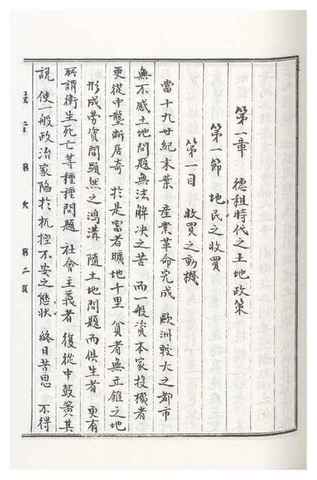 第一章 德租時代之土地政策
第一節 地民之收買
第一目 收買之動機
當十九世紀末葉 產業革命完成 歐洲較大之都市
無不感土地問題無法解决之苦 而一般資本家投機者
更從中壟断居奇 於是富者曠地千里 貧者無立錐之地
形成勞資間顕然之鴻溝 随土地問題而俱生者 更有
所謂衛生死亡等種種問題 社會主義者 復從中鼓簧其
說 使一般政治家陷於杌隉不安之態狀 終日苦思 不得